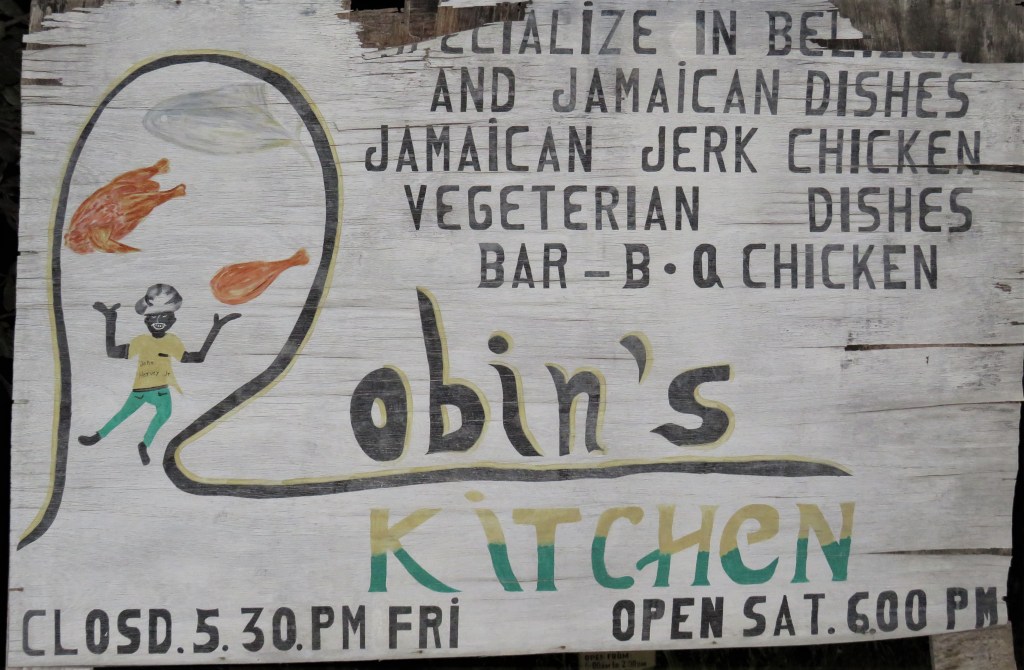 SPECIALIZE IN
AND JAMAiCAN DISHES
JAMAiCAN JERK CHICKEN
VEGETERIAN DISHES
BAR-B.Q CHICKEN
Robin's
KiTCHeN
CLOSD.5.30.PM FRi
OPEN SAT. 6.00 PM